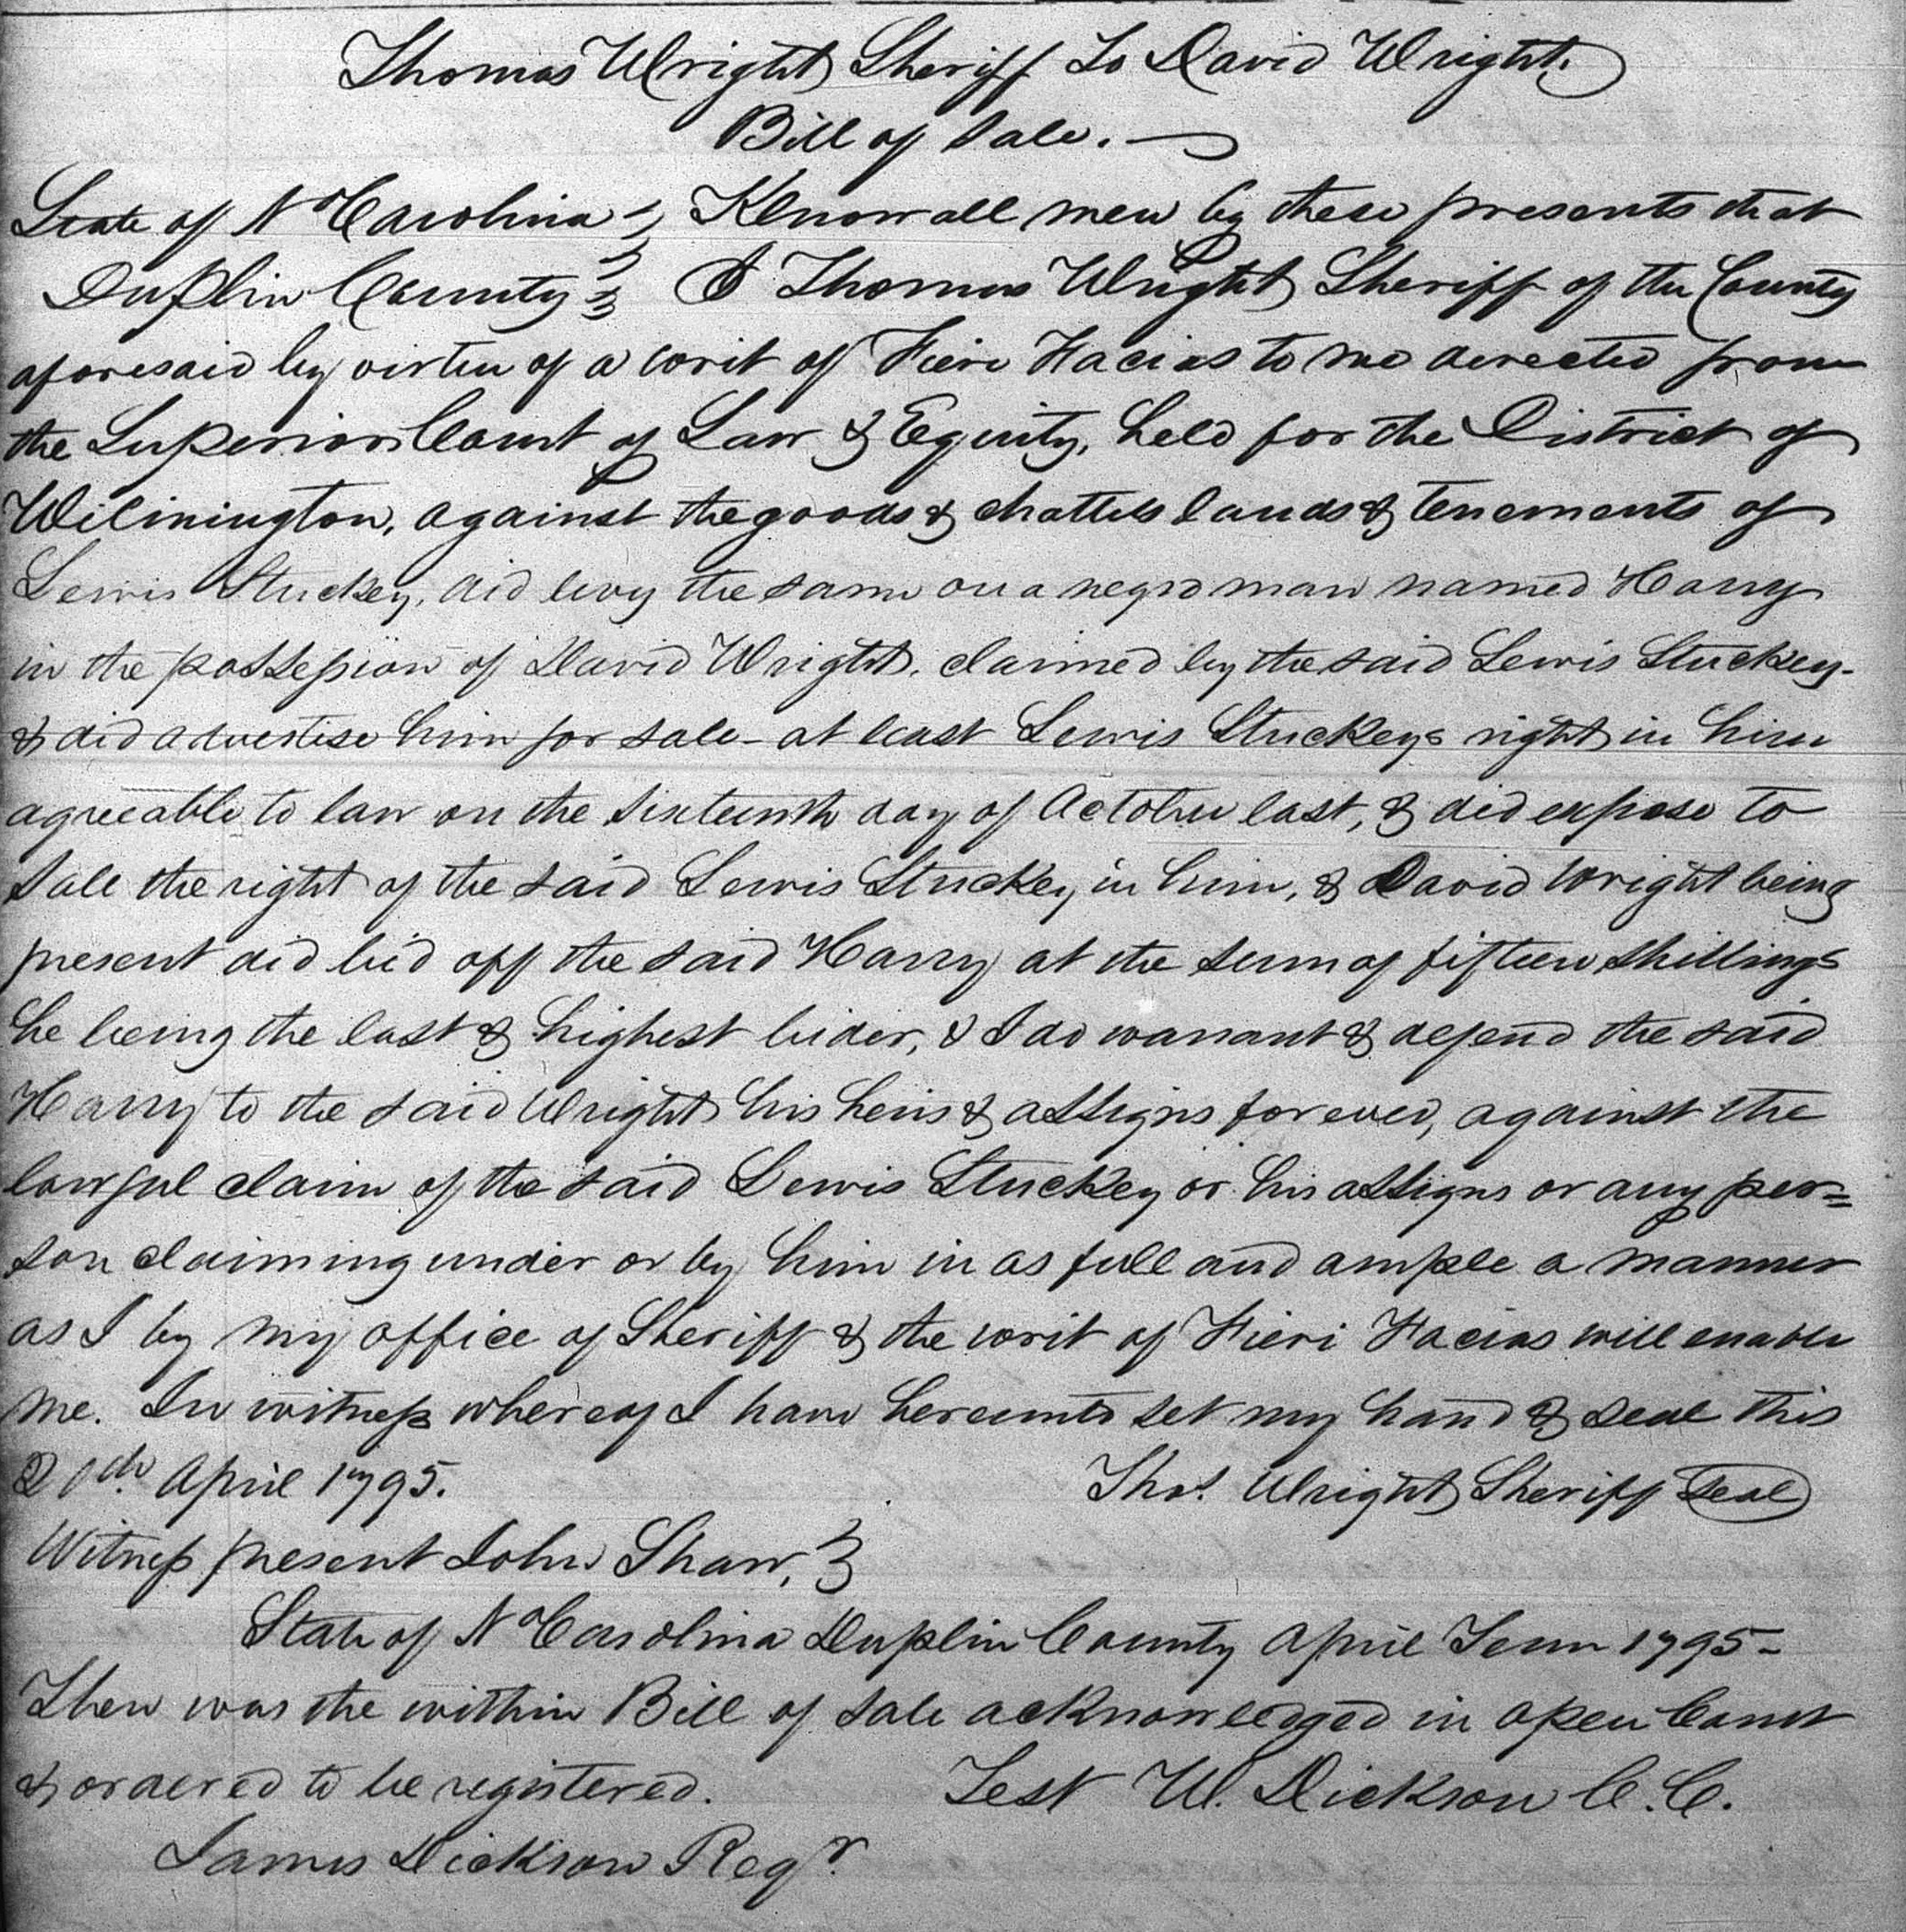 Thomas Wright Sheriff To David Wright.
Bill of Sale.
State of N Carolina Know all men by these presents that
Duplin County I Thomas Wright Sheriff of the County
aforesaid by virtue of a writ of Fieri Facias to me derected from
the Superior Court of Law & Equity, held for the District of
Wilmington, against the goods & chattels lands & tenements of
Lewis Stuckey, did levy the same on a negro man named Harry
in the possession of David Wright, claimed by the said Lewis Stuckey-
& did advertise him for sale - at least Lewis Stuckeys right in him
agreeable to law on the sixteenth day of October last, & did expose to
sale the right of the said Lewis Stuckey in him, & David Wright being
present did bid off the said Harry at the sum of fifteen shillings
he being the last & highest bider, & I do warrant & defend the said
Harry to the said Wright his heirs & assigns forever, against the
lawful claim of the said Lewis Stuckey or his assigns or any per=
son claiming under or by him in as full and ample a manner
as I by my office of Sheriff & the writ of Fieri Facias will enable
me. In witness whereof I have hereunto set my hand & seal this
20th April 1795. Thos. Wright Sheriff Seal
Witness present John Shaw,
State of N Carolina Duplin County April Term 1795-
Then was the within Bill of sale acknowledged in open Court
& ordered to be registered. Test W. Dickson C.C.
James Dickson Regr.